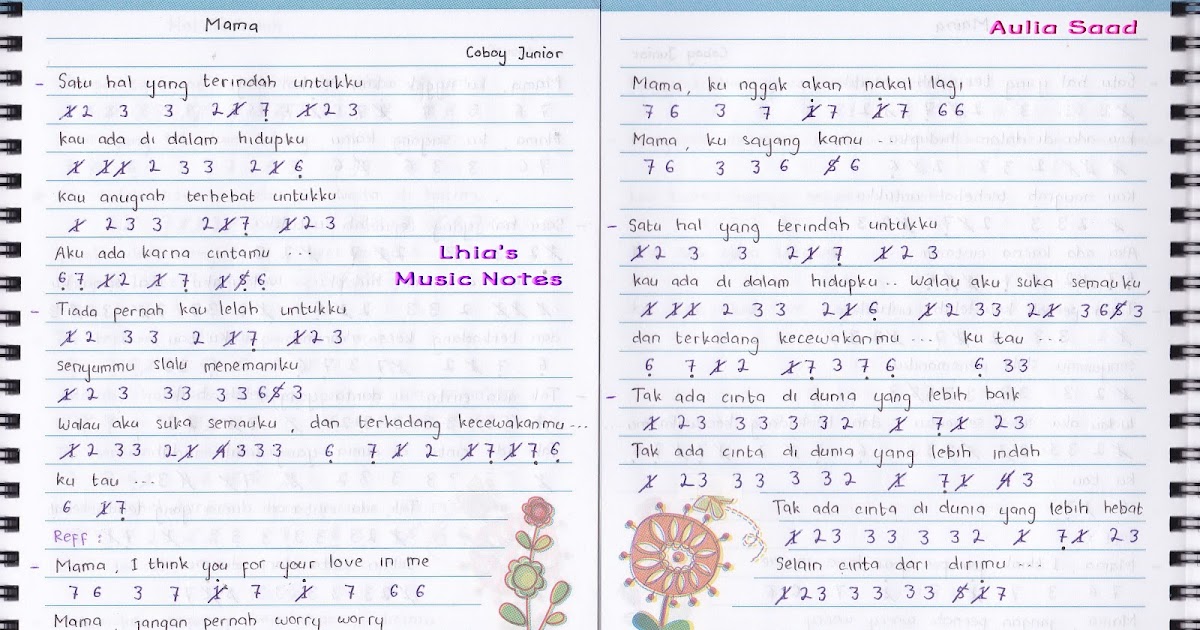 Mama
Coboy Junior
- Satu hal yang terindah untukku
1̸2 3 3 21̸7̣ 1̸23
kau ada di dalam hidupku
1̸ 1̸1̸ 2 33 21̸6̣
kau anugrah terhebat untukku
1̸ 233 21̸7̣ 1̸23
Aku ada karna cintamu ...
6̣7̣ 1̸2 1̸7̣ 1̸5̸6̣
- Tiada pernah kau lelah untukku
1̸2 33 2 1̸7̣ 1̸23
senyummu slalu menemaniku
1̸23 33 3365̸3
walau aku suka semauku, dan terkadang kecewakanmu ...
1̸2 33 21̸ 4̸333 6̣ 7̣1̸2 1̸7̣1̸7̣6̣
ku tau ...
6 1̸7̣
Reff :
- Mama, I think you for your love in me
76 3 7 1̸̇ 7 1̸̇ 7 6 6
Mama, jangan pernah worry worry
Lhia's
Music Notes
Aulia Saad
Mama, ku nggak akan nakal lagi
76 3 7 1̸̇7 1̸̇7 66
Mama, ku sayang kamu ...
76 3 36 5̸6
- Satu hal yang terindah untukku
1̸2 3 3 21̸7̣ 1̸23
kau ada di dalam hidupku.. walau aku suka semauku,
1̸ 1̸1̸ 2 33 21̸6̣ 1̸2 33 21̸ 365̸3
dan terkadang kecewakanmu .... ku tau ...
6̣ 7̣1̸2 1̸7̣37̣6̣ 6̣ 33
- Tak ada cinta di dunia yang lebih baik
1̸ 23 33 3 32 1̸ 7̣1̸ 23
Tak ada cinta di dunia yang lebih indah
1̸ 23 33 3 32 1̸ 7̣1̸ 4̸3
Tak ada cinta di dunia yang lebih hebat
1̸ 23 33 3 32 1̸ 7̣1̸ 23
Selain cinta dari dirimu ...
1̸23 33 33 5̸1̸7